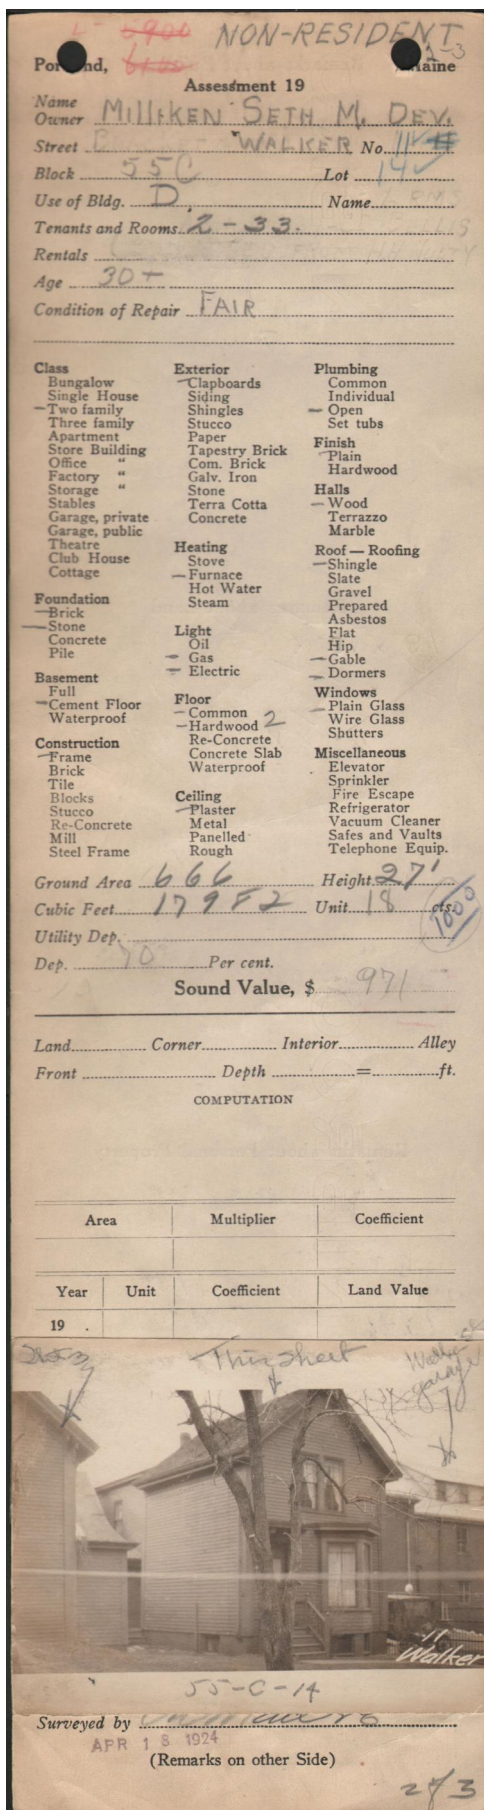 5900 NON-RESIDENT
Portland, 6100 Maine 2-3
Assessment 19
Name
Owner MILLIKEN SETH M. DEV.
Street WALKER No. 11
Block 55C Lot 14
Use of Bldg. D. Name
Tenants and Rooms. 2-33.
Rentals
Age 30+
Condition of Repair FAIR
Class
Bungalow
Single House
— Two family
Three family
Apartment
Store Building
Office "
Factory "
Storage "
Stables
Garage, private
Garage, public
Theatre
Club House
Cottage
Foundation
— Brick
— Stone
Concrete
Pile
Basement
Full
— Cement Floor
Waterproof
Construction
— Frame
Brick
Tile
Blocks
Stucco
Re-Concrete
Mill
Steel Frame
Exterior
— Clapboards
Siding
Shingles
Stucco
Paper
Tapestry Brick
Com. Brick
Galv. Iron
Stone
Terra Cotta
Concrete
Heating
Stove
— Furnace
Hot Water
Steam
Light
Oil
— Gas
— Electric
Floor
— Common
— Hardwood 2
Re-Concrete
Concrete Slab
Waterproof
Ceiling
— Plaster
Metal
Panelled
Rough
Plumbing
Common
Individual
— Open
Set tubs
Finish
— Plain
Hardwood
Halls
— Wood
Terrazzo
Marble
Roof — Roofing
— Shingle
Slate
Gravel
Prepared
Asbestos
Flat
Hip
— Gable
— Dormers
Windows
— Plain Glass
Wire Glass
Shutters
Miscellaneous
Elevator
Sprinkler
Fire Escape
Refrigerator
Vacuum Cleaner
Safes and Vaults
Telephone Equip.
Ground Area 666 Height 27'
Cubic Feet 17982 Unit 18 cts.
1000
Utility Dep.
Dep. 70 Per cent.
Sound Value, $ 971
Land Corner Interior Alley
Front Depth = ft.
COMPUTATION
Area Multiplier Coefficient
Year Unit Coefficient Land Value
19 .
This sheet
garage
11
Walker
55-C-14
Surveyed by
APR 18 1924
(Remarks on other Side)
2 of 3